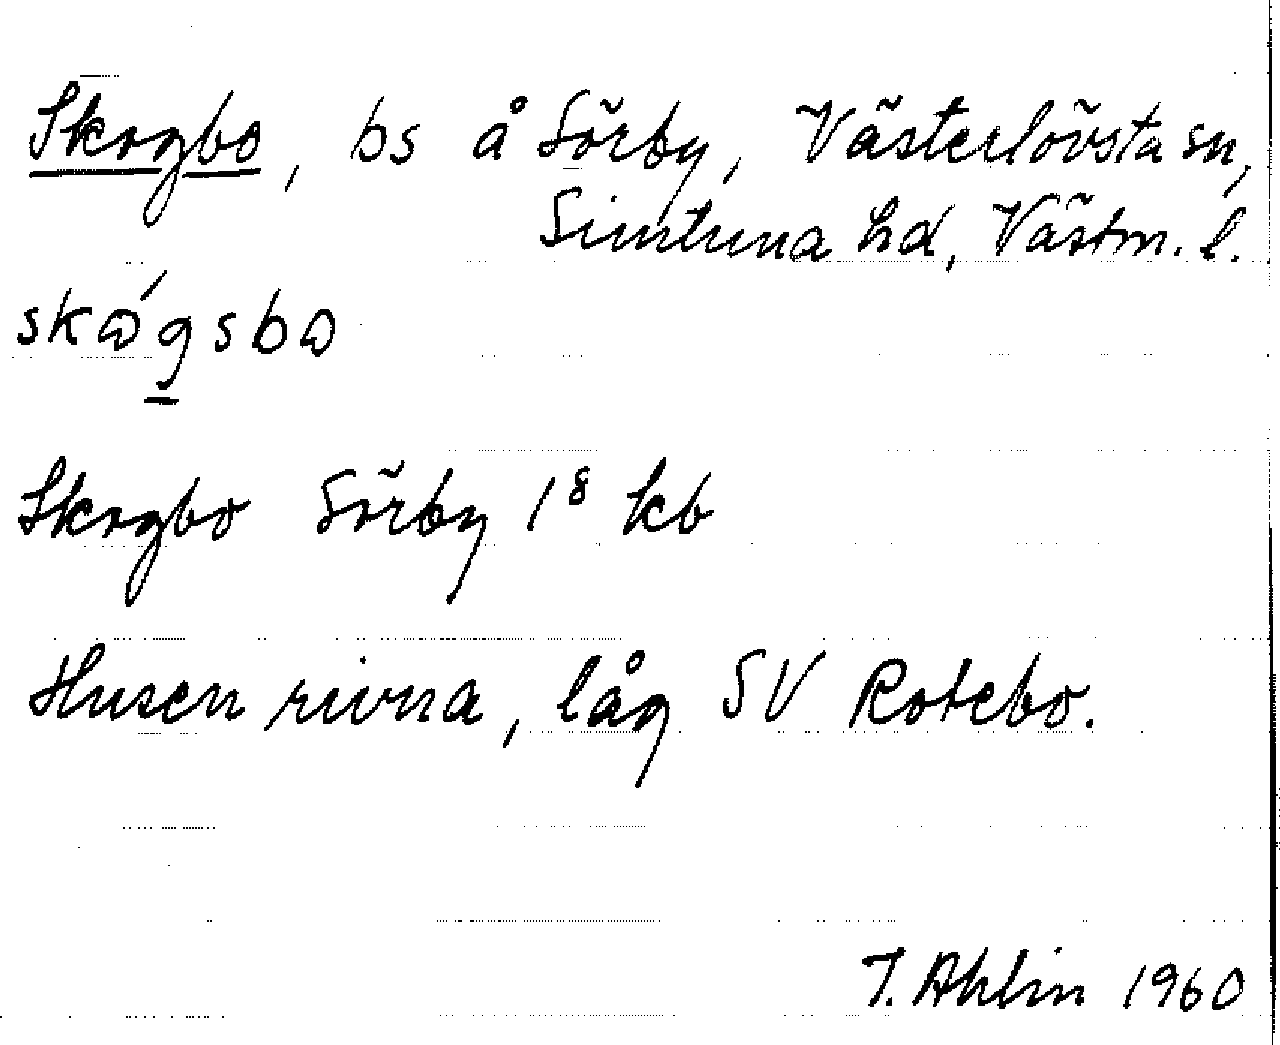 Skogbo, bs å Sörby, Västerlövsta sn,
Simtuna hd, Västm. l.
skɷ́gsbɷ
Skogbo Sörby 1⁸ kb
Husen rivna, låg SV Rotebo.
T. Ahlin 1960